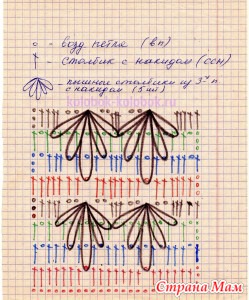 o - возд петля (вп)
† - столбик с накидом (ссн)
- пышные столбики из 3-х п
с накидом (5 шт)
kolobok-kolobok.ru
Страна Мам